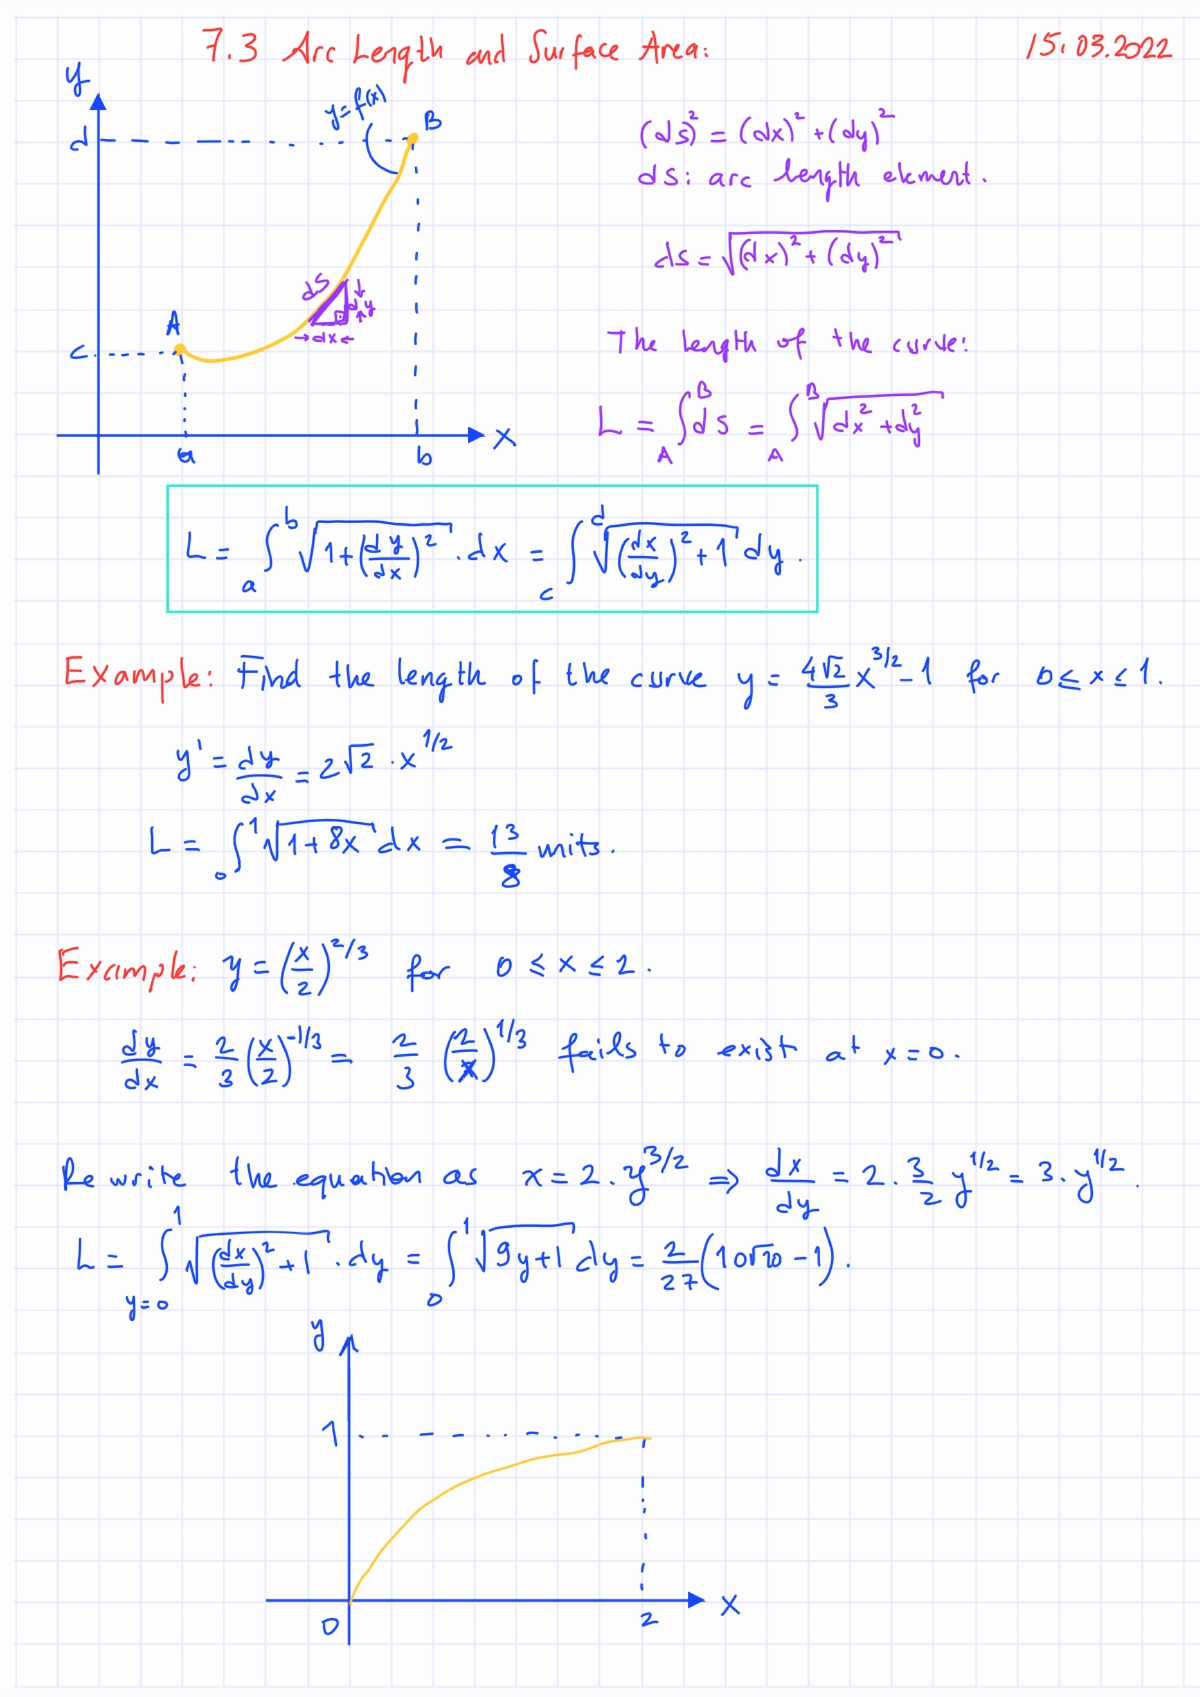 7.3 Arc Length and Surface Area: 15.03.2022
y
y=f(x)
B
d
(ds)² = (dx)² + (dy)²
ds: arc length element.
ds = √((dx)² + (dy)²)
ds
dy
→dx←
A
c
The length of the curve:
L = ∫_A^B ds = ∫_A^B √(dx² + dy²)
a b x
L = ∫_a^b √(1 + (dy/dx)²) . dx = ∫_c^d √((dx/dy)² + 1) dy .
Example: Find the length of the curve y = 4√2/3 x^(3/2) - 1 for 0 ≤ x ≤ 1.
y' = dy/dx = 2√2 . x^(1/2)
L = ∫_0^1 √(1 + 8x) dx = 13/8 units.
Example: y = (x/2)^(2/3) for 0 ≤ x ≤ 2.
dy/dx = 2/3 (x/2)^(-1/3) = 2/3 (2/x)^(1/3) fails to exist at x = 0.
Rewrite the equation as x = 2 . y^(3/2) ⇒ dx/dy = 2 . 3/2 y^(1/2) = 3 . y^(1/2) .
L = ∫_(y=0)^1 √((dx/dy)² + 1) . dy = ∫_0^1 √(9y + 1) dy = 2/27 (10√10 - 1) .
y
1
0 2 x